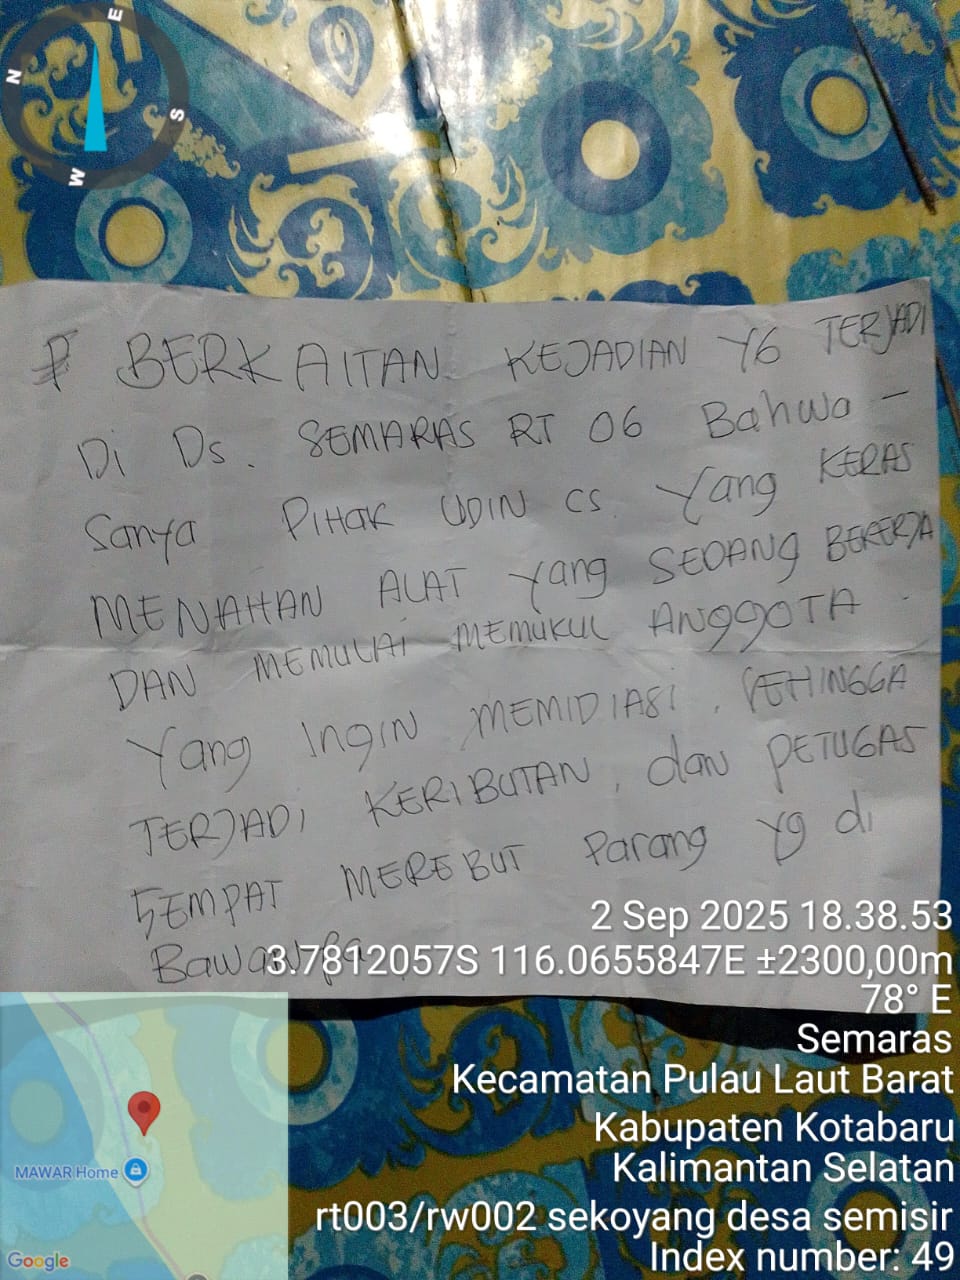 N
E
S
W
BERKAITAN KEJADIAN YG TERJADI
Di Ds. SEMARAS RT 06 Bahwa -
Sanya PIHAK UDIN CS. Yang KERAS
MENAHAN ALAT yang SEDANG BEKERJA
DAN MEMULAi MEMUKUL ANGGOTA
Yang INgIN MEMIDIASI, SEHINGGA
TERJADI KERIBUTAN, dan PETUGAS
SEMPAT MEREBUT Parang yg di
2 Sep 2025 18.38.53
3.7812057S 116.0655847E ±2300,00m
78° E
Semaras
Kecamatan Pulau Laut Barat
Kabupaten Kotabaru
Kalimantan Selatan
rt003/rw002 sekoyang desa semisir
Index number: 49
MAWAR Home
Google